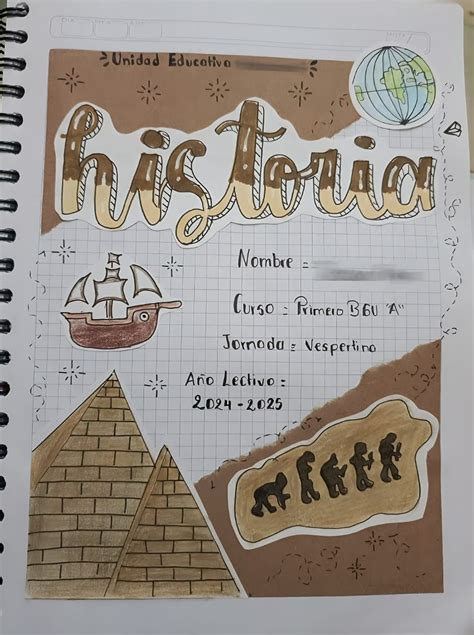 Unidad Educativa
historia
Nombre =
Curso = Primero BGU "A"
Jornada = Vespertina
Año Lectivo =
2024 - 2025